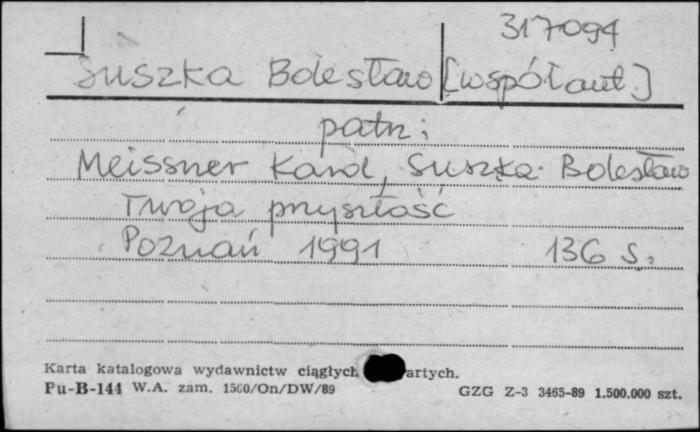 317094
Suszka Bolesław [współaut.]
patrz:
Meissner Karol, Suszka Bolesław
Twoja przyszłość
Poznań 1991 136 s.
Karta katalogowa wydawnictw ciągłych artych.
Pu-B-144 W.A. zam. 1560/On/DW/89 GZG Z-3 3465-89 1.500.000 szt.